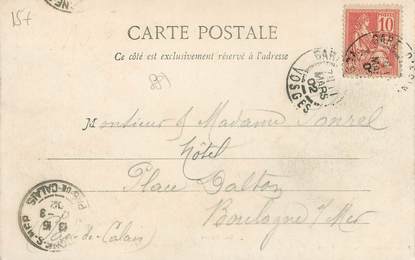 157
CARTE POSTALE
Ce côté est exclusivement réservé à l'adresse
10
GARE
MARS
02
VOSGES
89
Monsieur & Madame
Hôtel
Place Dalton
Boulogne s/Mer
(Pas-de-Calais)
PAS-DE-CALAIS